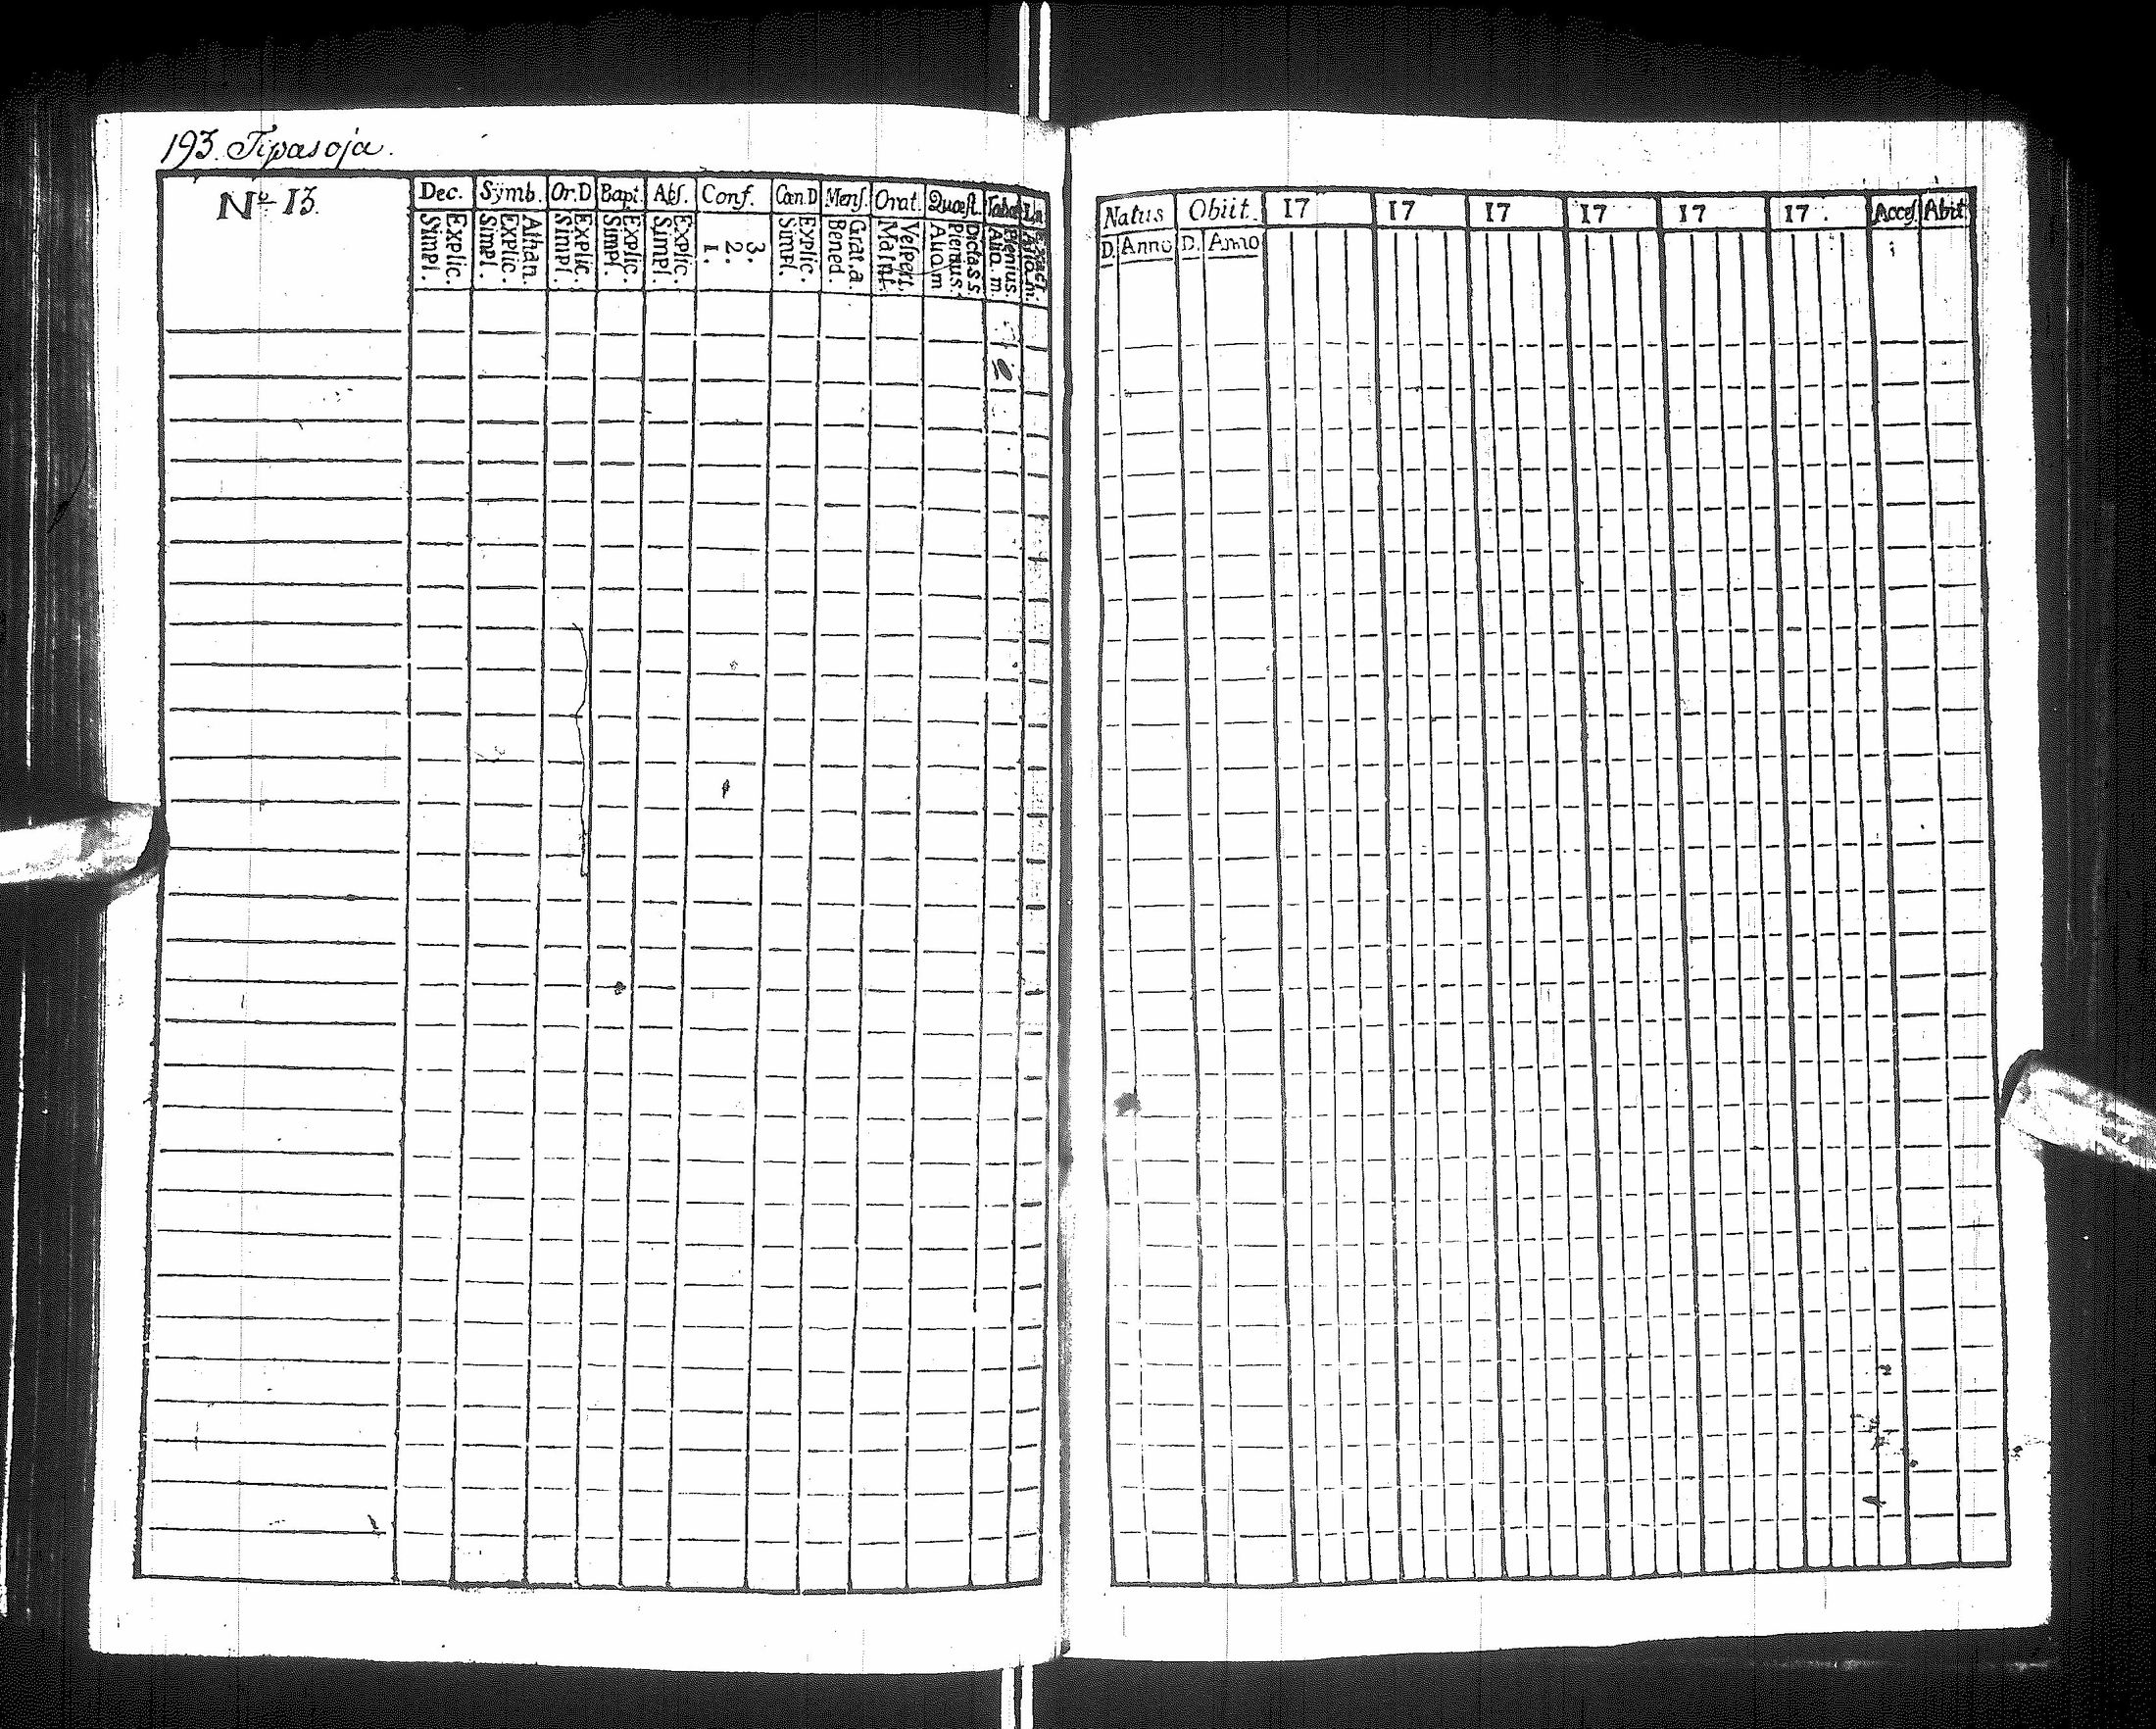 193. Tipasoja.
No 13.
Dec. Symb. Or.D Bapt. Abs. Conf. Cœn.D Mens. Orat. Quæst. Tabœ
Explic. Simpl.
Athan. Explic. Simpl.
Explic. Simpl.
Explic. Simpl.
Explic. Simpl.
3. 2. 1.
Explic. Simpl.
Grat.a. Bened.
Vespert. Matut.
Dicta S S. Plenius. Aliq.m
Plenius. Aliq.m.
Exact. Aliq.m.
Natus Obiit. 17 17 17 17 17 17. Acces Abit
D. Anno D. Anno